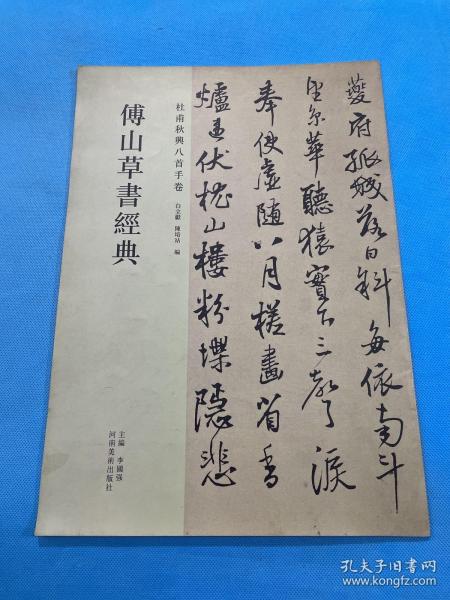 夔府孤城落日斜每依南斗
望京華聽猿實下三聲淚
奉使虛隨八月槎畫省香
爐違伏枕山樓粉堞隱悲
杜甫秋興八首手卷
白立獻 陳培站 編
傅山草書經典
主編 李國強
河南美術出版社
孔夫子旧书网
www.kongfz.com